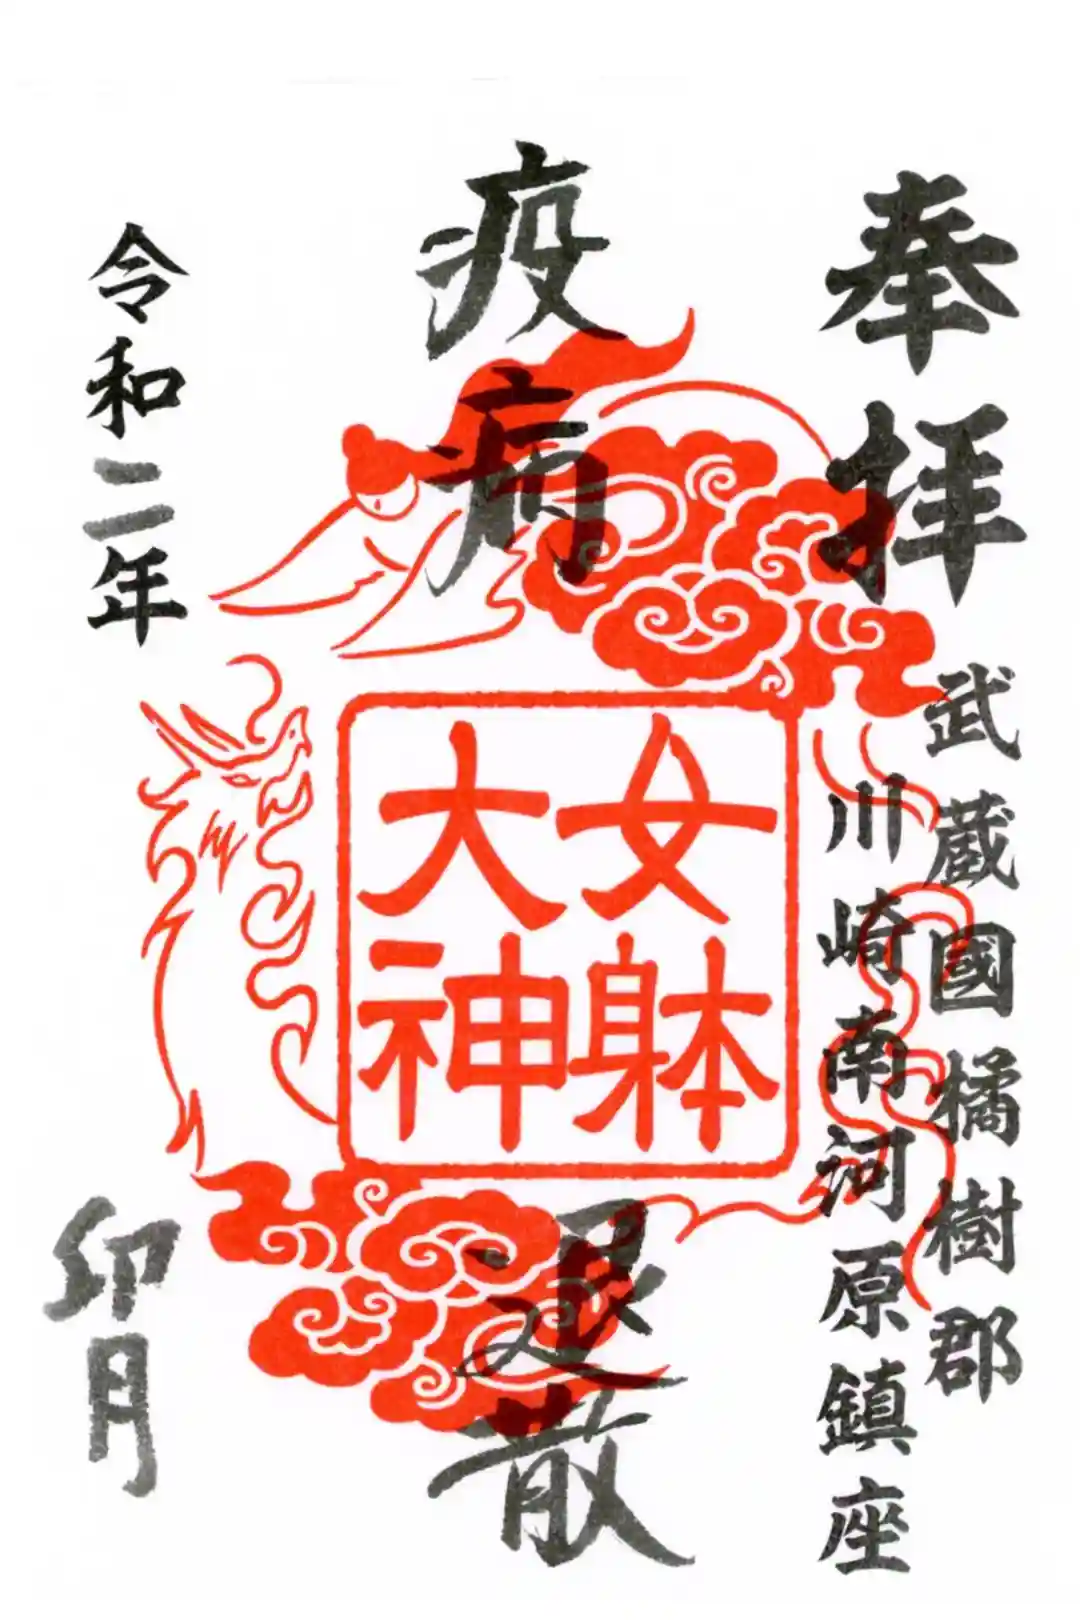 奉拝
武蔵國橘樹郡
川崎南河原鎮座
疫病
女躰
大神
退散
令和二年
卯月